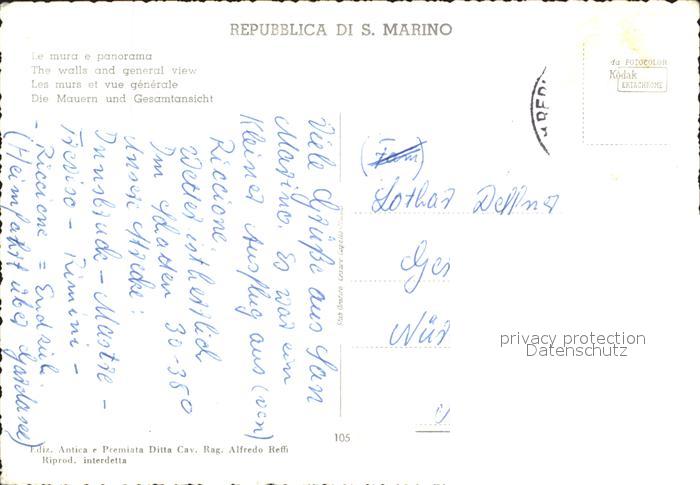 REPUBBLICA DI S. MARINO
Le mura e panorama
The walls and general view
Les murs et vue générale
Die Mauern und Gesamtansicht
da FOTOCOLOR
Kodak
EKTACHROME
Viele Grüße aus San
Marino. Es war ein
kleiner Ausflug aus (von)
Riccione.
Wetter ist herrlich
Im Schatten 30-35°
Unsere Strecke:
Innsbruck - Mestre -
Treviso - Rimini -
- Riccione = Endziel.
(Heimfahrt über Gardasee)
Lothar
Ger
Nür
privacy protection
Datenschutz
105
Ediz. Antica e Premiata Ditta Cav. Rag. Alfredo Reffi
Riprod. interdetta